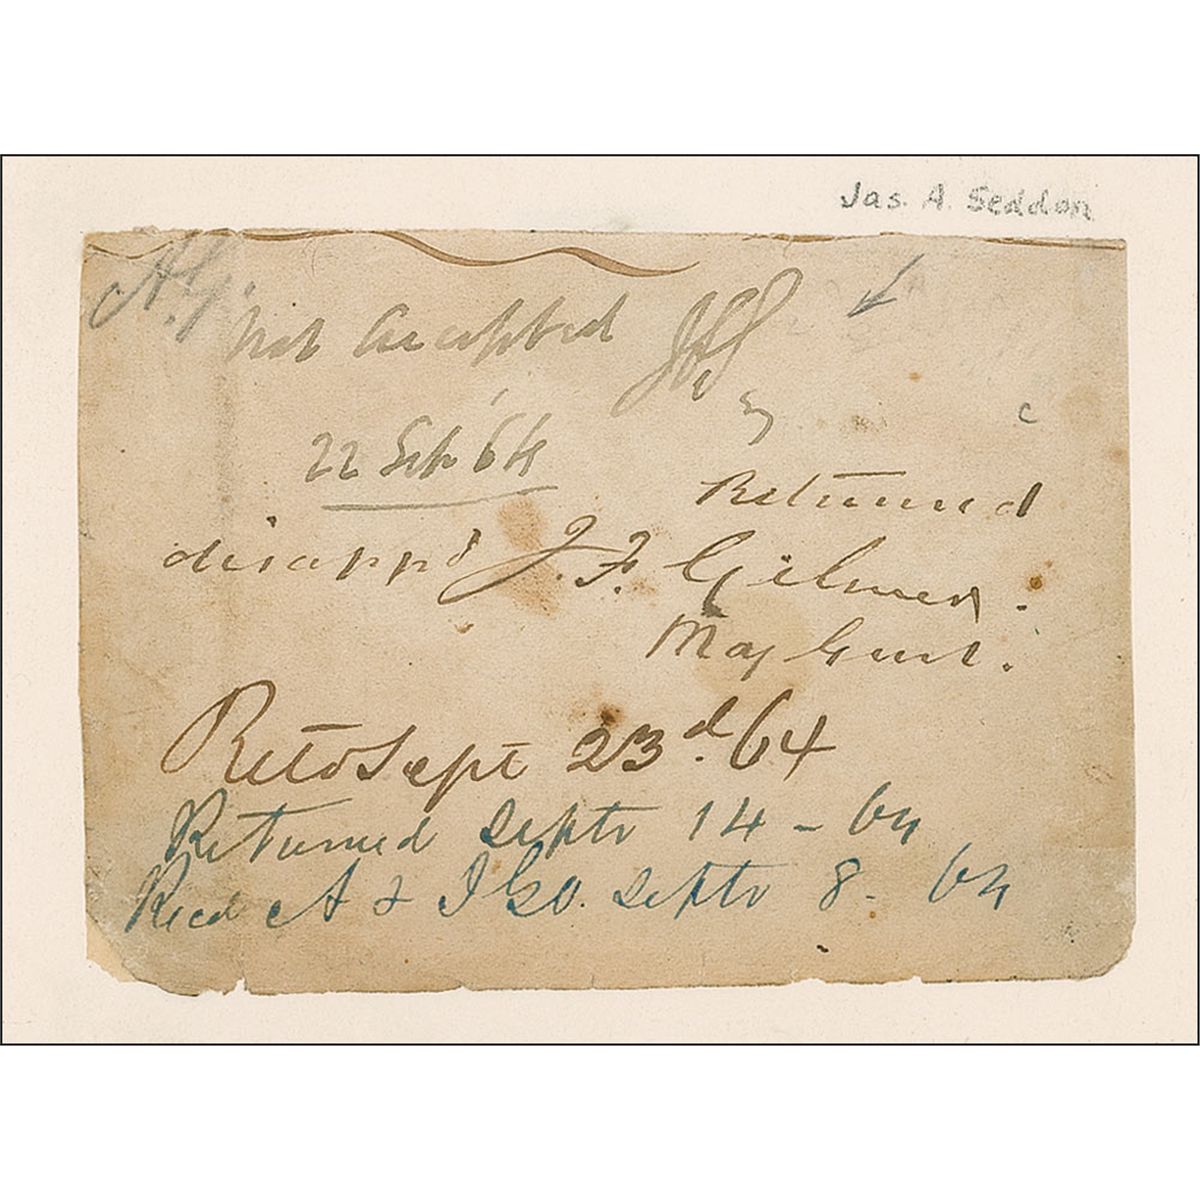 Jas. A. Seddon
A.G.
Not Accepted JAS
22 Sep '64
Returned
disappd J. F. Gilmer.
Maj Genl.
Retd Sept 23d 64
Returned Septr 14 - 64
Recd A & IGO. Septr 8 - 64